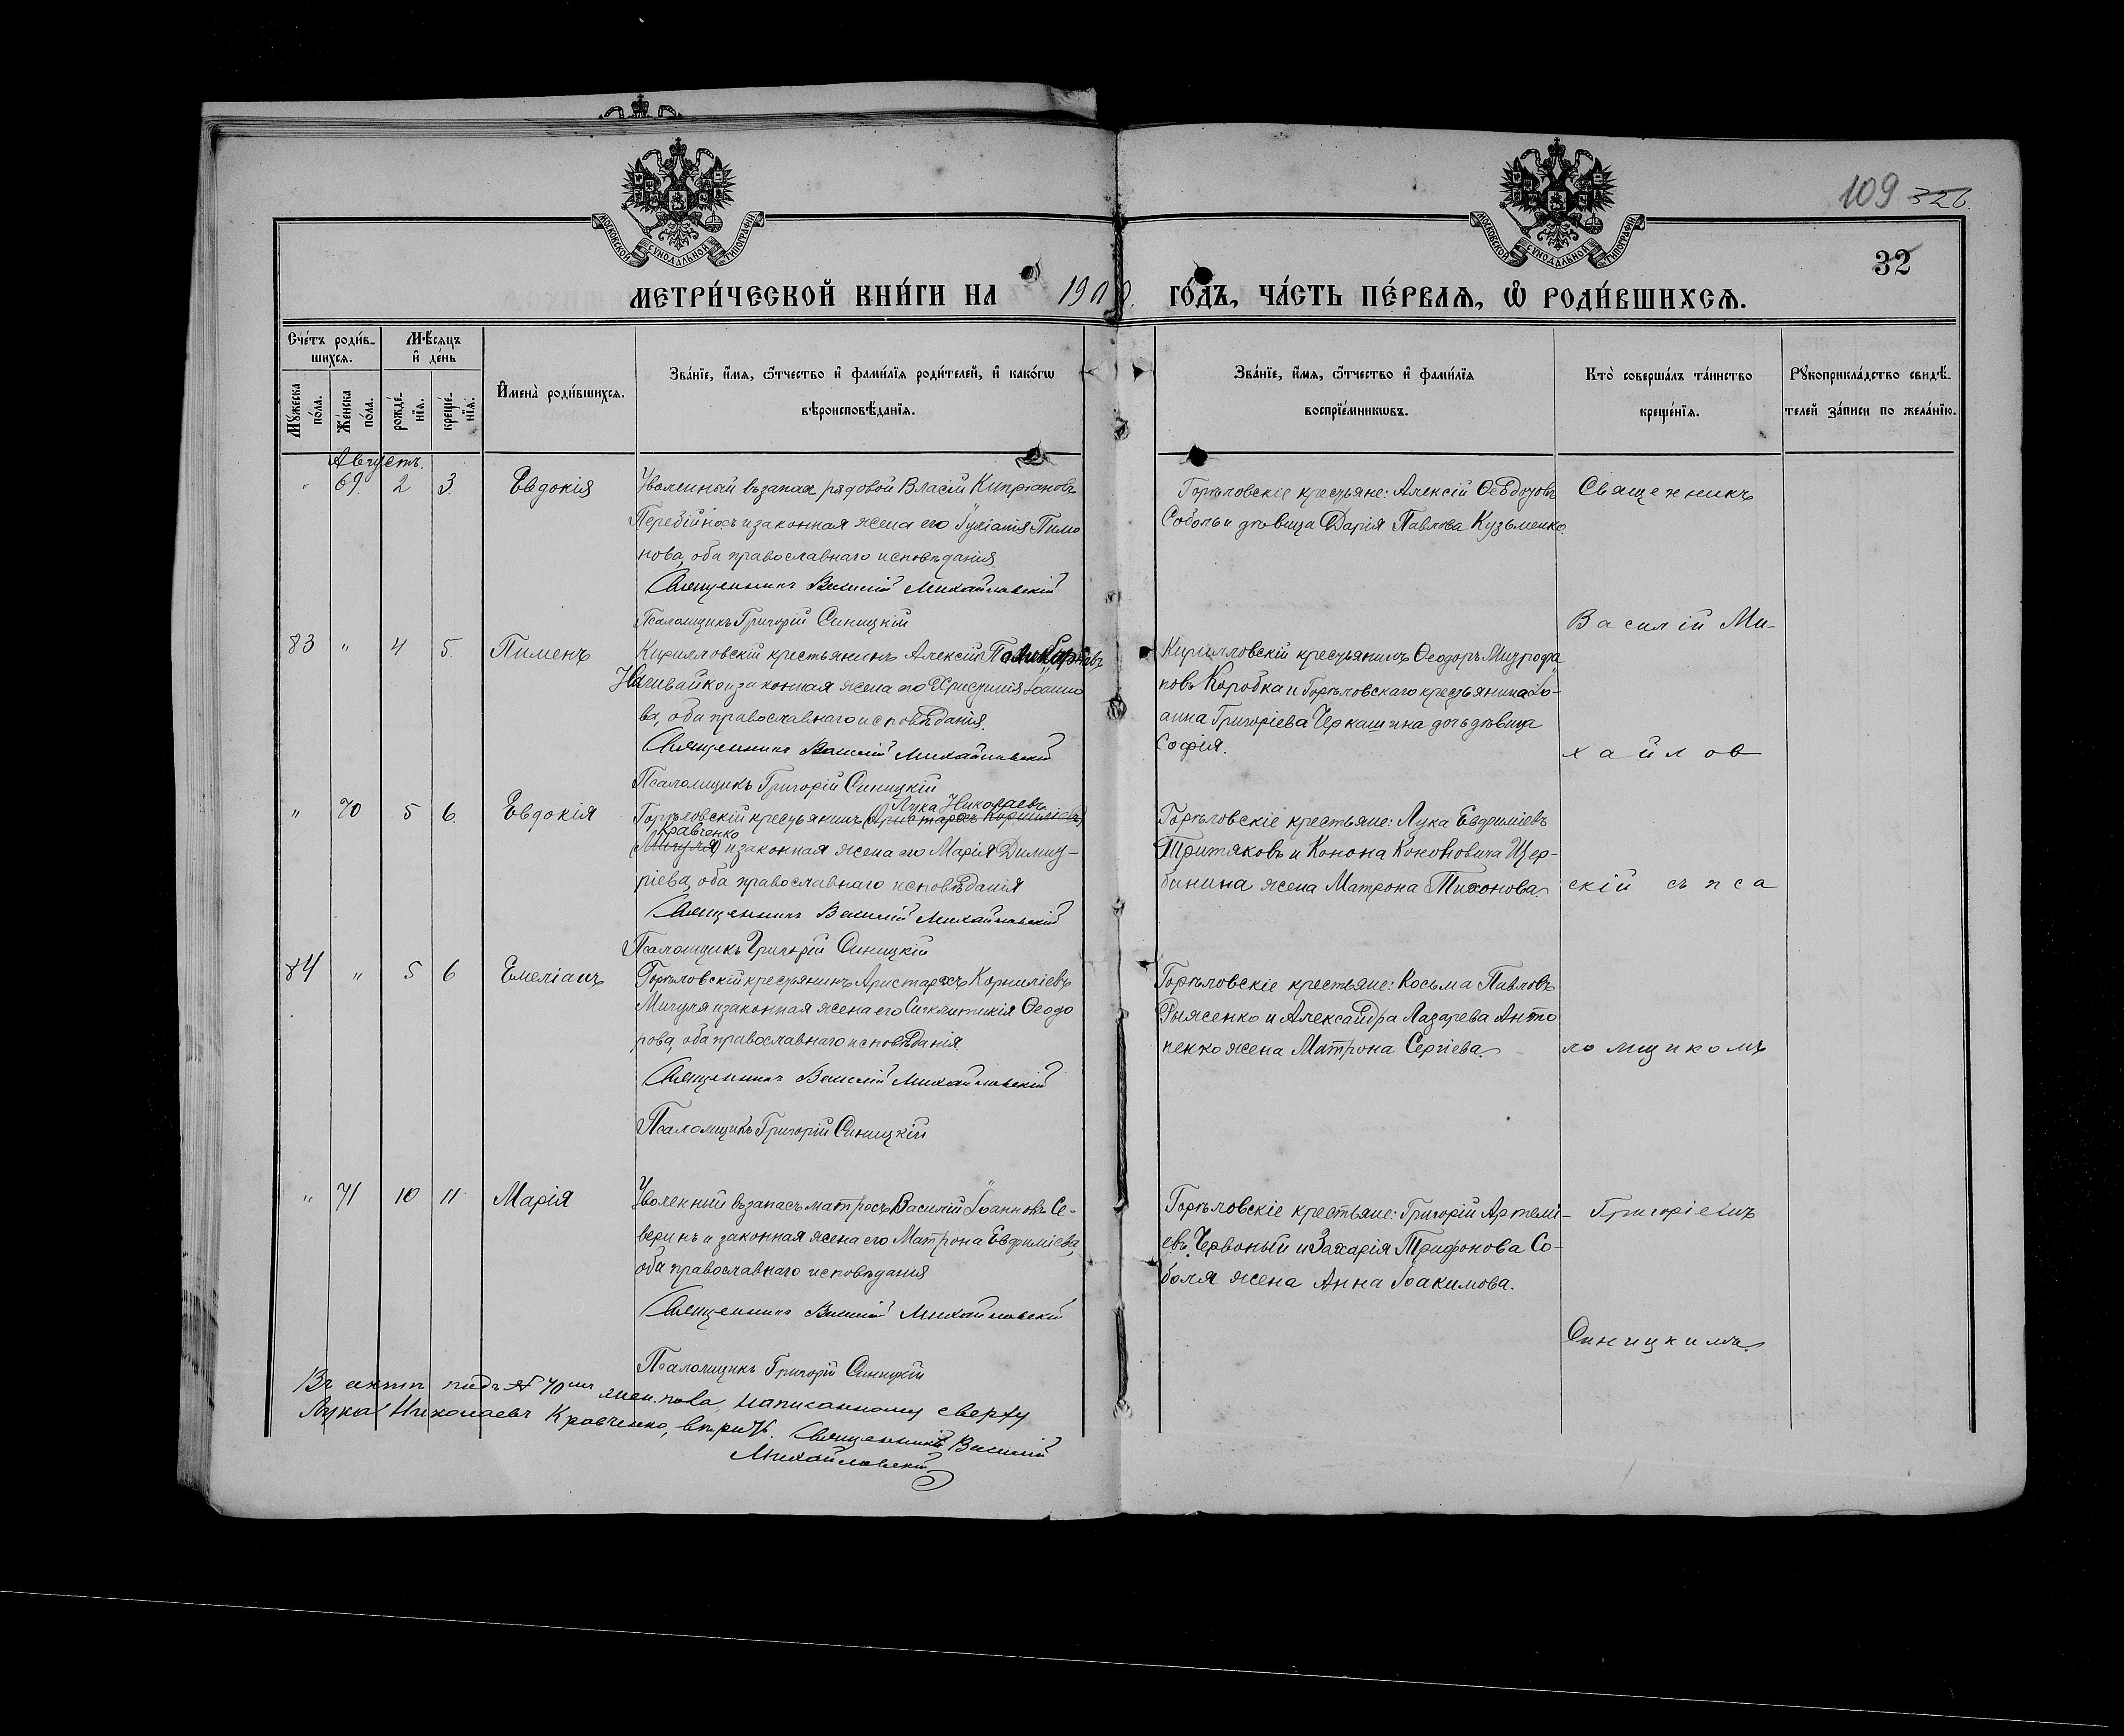 МОСКОВСКОЙ СУНОДАЛЬНОЙ ТИПОГРАФІИ
МОСКОВСКОЙ СУНОДАЛЬНОЙ ТИПОГРАФІИ
109 326.
32
МЕТРИ́ЧЕСКОЙ КНИ́ГИ НА
ГО́ДЪ, ЧА́СТЬ ПЕ́РВАѦ, Ѿ РОДИ́ВШИХСѦ.
Сче́тъ роди́в-
шихсѧ.
Мѣ́сѧцъ
и де́нь
Мꙋжеска по́ла.
Же́нска по́ла.
рожде́-нїѧ.
креще́-нїѧ.
Имена̀ роди́вшихсѧ.
Зва́нїе, и́мѧ, ѻ҆́тчество и҆ фами́лїѧ роди́телей, и҆ како́гѡ
вѣроисповѣ́данїѧ.
Зва́нїе, и́мѧ, ѻ҆́тчество и҆ фами́лїѧ
воспрїе́мникѡвъ.
Кто̀ соверша́лъ та́инство
креще́нїѧ.
Рꙋкоприкла́дство свидѣ́-
телей за́писи по жела́нїю.
Августъ.
" 69. 2 3. Евдокія
Уволенный въ запас рядовой Власій Кипріановъ
Перебійносъ и законная жена его Іуліанія Пимо
нова, оба православнаго исповѣданія.
Священникъ Василій Михайловскій
Псаломщикъ Григорій Синицкій
Горѣловскіе крестьяне: Алексій
Соболь и дѣвица Дарія Павлова Кузьменко.
Священникъ
Василій Ми-
83 " 4 5. Пименъ
Кирилловскій крестьянинъ Алексій Поликарповъ
Наливайко и законная жена его Христинія Іоанно
ва, оба православнаго исповѣданія.
Священникъ Василій Михайловскій
Псаломщикъ Григорій Синицкій
Кирилловскій крестьянинъ Ѳеодоръ Митрофа
новъ Коробка и Горѣловскаго крестьянина Іо-
анна Григоріева Черкашина дочь дѣвица
Софія.
хайлов
" 70 5 6. Евдокія
Лука Николаевъ
Горѣловскій крестьянинъ (Аристархъ Корниліевъ)
Кравченко
(Мигуля) и законная жена его Марія Димит-
ріева, оба православнаго исповѣданія
Священникъ Василій Михайловскій
Псаломщикъ Григорій Синицкій
Горѣловскіе крестьяне: Лука Евфиміевъ
Третяковъ и Конона Кононовича Щер-
бинина жена Матрона Тихонова.
скій съ пса
84 " 5 6 Емеліанъ
Горѣловскій крестьянинъ Аристархъ Корниліевъ
Мигуля и законная жена его Сигклитикія Ѳеодо
рова, оба православнаго исповѣданія.
Священникъ Василій Михайловскій
Псаломщикъ Григорій Синицкій
Горѣловскіе крестьяне: Косьма Павловъ
и Александра Лазарева Анто
ненко жена Матрона Сергіева.
ломщикомъ
" 71 10 11. Марія
Уволенный въ запасъ матросъ Василій Іоанновъ Се-
веринъ и законная жена его Матрона Евфиміева,
оба православнаго исповѣданія
Священникъ Василій Михайловскій
Псаломщикъ Григорій Синицкій
Горѣловскіе крестьяне: Григорій Артемі-
евъ Червоный и Захарія Трифонова Со-
боля жена Анна Іоакимова.
Григоріемъ
Синицкимъ.
Въ актѣ подъ № 70 написанному сверху
Лука Николаевъ Кравченко, вѣрить. Священникъ Василій
Михайловскій